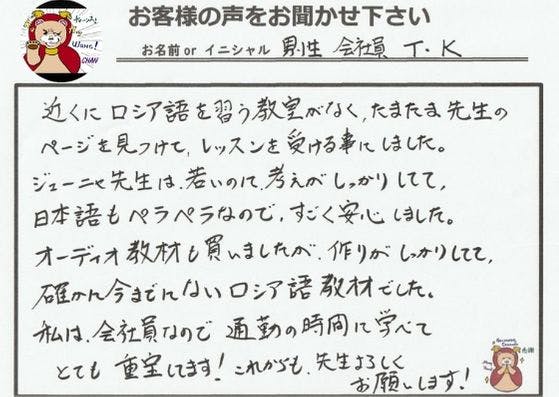 お客様の声をお聞かせ下さい
お名前 or イニシャル 男性 会社員 T・K
WANG!
CHAN
近くに ロシア語を習う教室がなく、たまたま先生の
ページを見つけて、レッスンを受ける事にしました。
ジェーニャ先生は、若いのに、考えがしっかりしてて、
日本語もペラペラなので、すごく安心しました。
オーディオ教材も買いましたが、作りがしっかりしてて、
確かに今までにないロシア語教材でした。
私は、会社員なので 通勤の時間に学べて
とても 重宝してます！これからも、先生よろしく
お願いします！
感謝